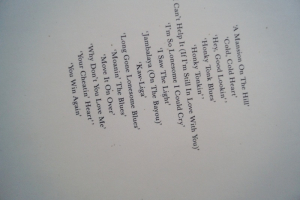 'A Mansion On The Hill'
'Cold, Cold Heart'
'Hey, Good Lookin''
'Honky Tonk Blues'
'Honky Tonkin''
Can't Help It (If I'm Still In Love With You)'
'I'm So Lonesome I Could Cry'
'I Saw The Light'
'Jambalaya (On The Bayou)'
'Kaw-Liga'
'Long Gone Lonesome Blues'
'Moanin' The Blues'
'Move It On Over'
'Why Don't You Love Me'
'Your Cheatin' Heart'
'You Win Again'